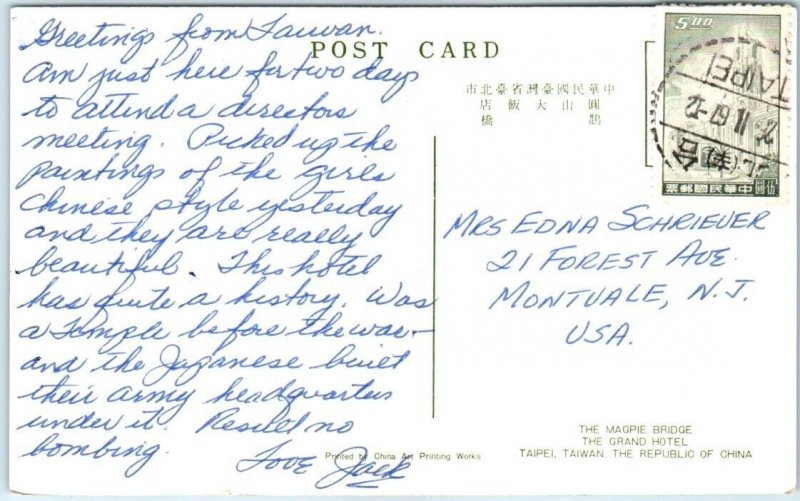 Greetings from Taiwan.
Am just here for two days
to attend a directors
meeting. Picked up the
paintings of the girls
Chinese style yesterday
and they are really
beautiful. This hotel
has quite a history. Was
a Temple before the war -
and the Japanese built
their army headquarters
under it. Result no
bombing.
Love Jack
POST CARD
中華民國臺灣省臺北市
圓山大飯店
鵲橋
5.00
TAIPEI
中華民國郵票
伍圓
MRS EDNA SCHRIEVER
21 FOREST AVE.
MONTVALE, N.J.
USA.
THE MAGPIE BRIDGE
THE GRAND HOTEL
TAIPEI, TAIWAN, THE REPUBLIC OF CHINA
Printed by China Art Printing Works